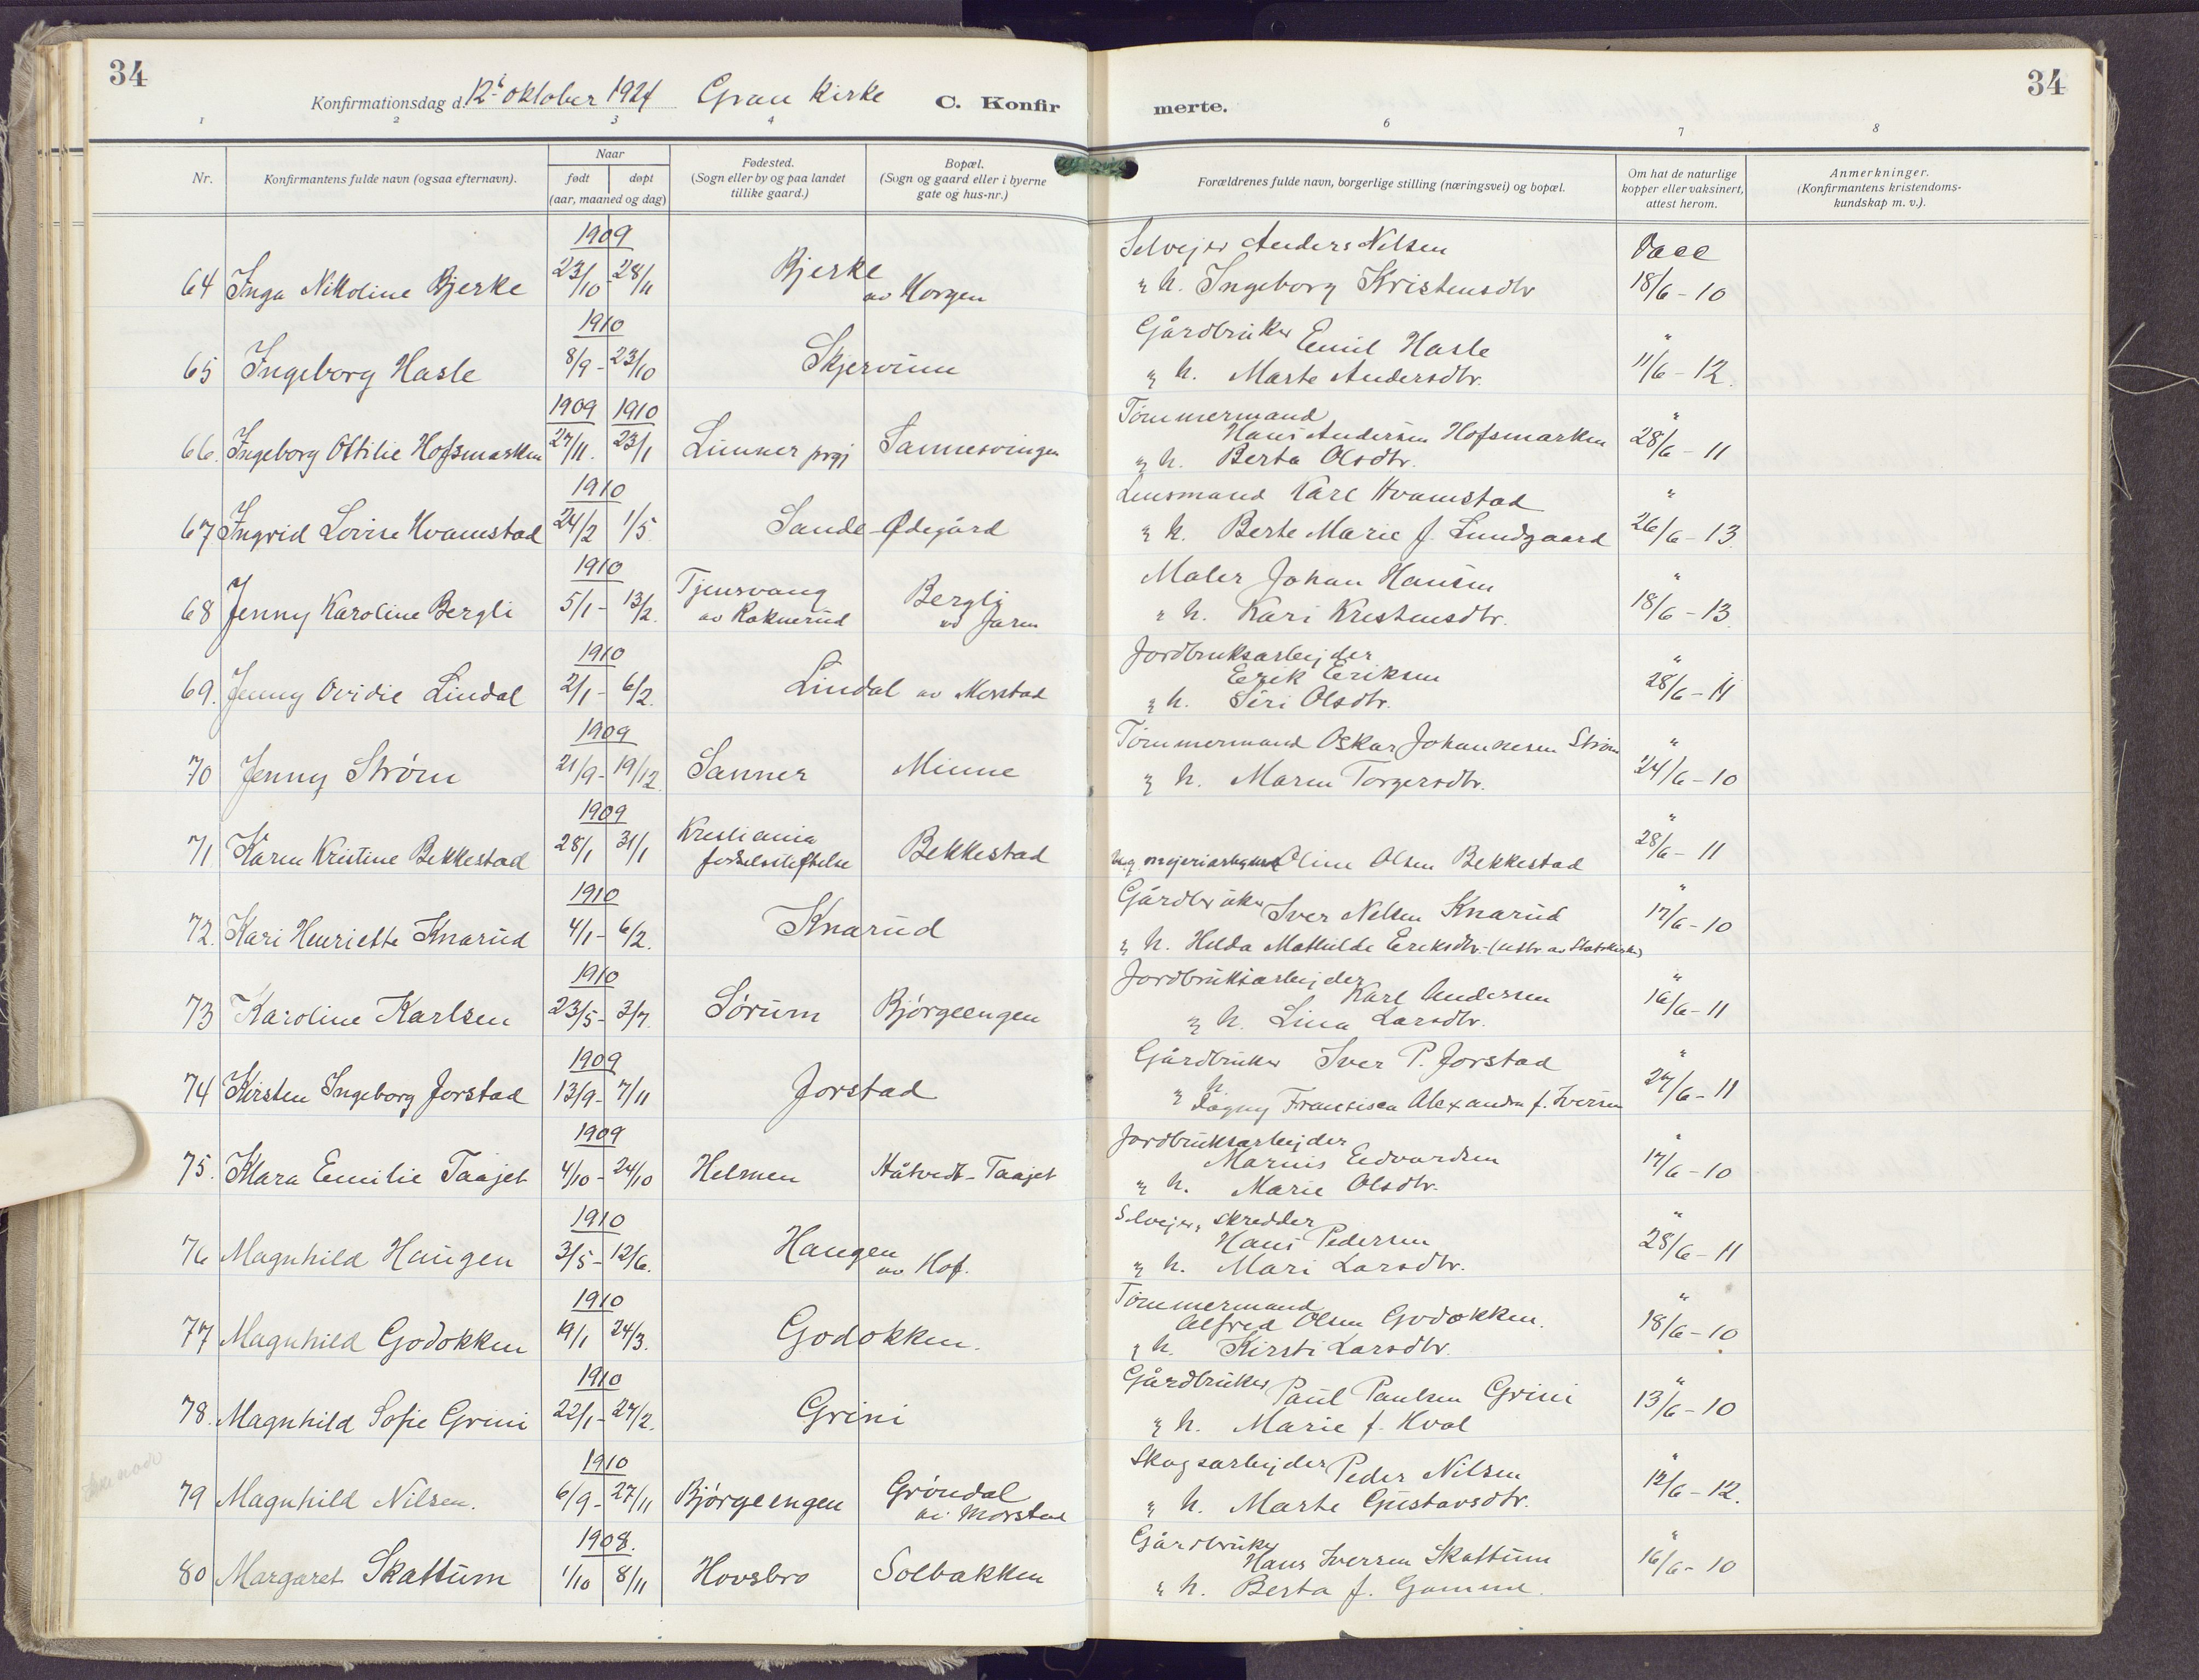 34
Konfirmationsdag d. 12te oktober 1924 Gran kirke C. Konfir merte.
34
1 2 3 4 6 7 8
Nr.
Konfirmantens fulde navn (ogsaa efternavn).
Naar
født døpt
(aar, maaned og dag)
Fødested.
(Sogn eller by og paa landet
tillike gaard.)
Bopæl.
(Sogn og gaard eller i byerne
gate og hus-nr.)
Forældrenes fulde navn, borgerlige stilling (næringsvei) og bopæl.
Om hat de naturlige
kopper eller vaksinert,
attest herom.
Anmerkninger.
(Konfirmantens kristendoms-
kundskap m. v.).
1909 Selvejer Anders Nilsen Vacc
64 Inga Nikoline Bjerke 23/10 - 28/11 Bjerke av Horgen " h. Ingeborg Kristensdtr 18/6 - 10
1910 Gårdbruker Emil Hasle "
65 Ingeborg Hasle 8/9 - 23/10 Skjervum " h. Marte Andersdtr. 11/6 - 12.
1909 1910 Tømmermand Hans Andersen Hofsmarken "
66. Ingeborg Ottilie Hofsmarken 27/11. 23/1 Lunner prgj Sannesvingen " h. Berta Olsdtr. 28/6 - 11
1910 Lensmand Karl Hvamstad "
67. Ingrid Lovise Hvamstad 24/2 1/5 Sande-Ødegård " h. Berte Marie f. Lundgaard 26/6 - 13.
1910 Maler Johan Hansen "
68 Jenny Karoline Bergli 5/1 - 13/2. Tjensvang av Raknerud Bergli av Jaren " h. Kari Kristensdtr. 18/6 - 13.
1910 Jordbruksarbejder Erik Eriksen "
69. Jenny Ovidie Lindal 2/1 - 6/2. Lindal av Morstad " h. Siri Olsdtr. 28/6 - 11
1909 Tømmermand Oskar Johannesen Strøm "
70 Jenny Strøm 21/9 - 19/12. Sanner Minne " h. Maren Torgersdtr. 24/6 - 10
1909 "
71 Karen Kristine Bekkestad 28/1 31/1 Kristiania fødselsstiftelse Bekkestad Oline Olsen Bekkestad 28/6 - 11
1910 Gårdbruker Iver Nilsen Knarud "
72. Kari Henriette Knarud 4/1 - 6/2. Knarud " h. Helda Mathilde Eriksdtr. (uttr. av Statskirken) 17/6 - 10
1910 Jordbruksarbejder Karl Andersen "
73 Karoline Karlsen 23/5 - 3/7. Sørum Bjørgeengen " h. Lina Larsdtr. 16/6 - 11
1909 Gårdbruker Iver P. Jorstad "
74 Kirsten Ingeborg Jorstad 13/9 - 7/11 Jorstad " h. Dagny Fransisca Alexandra f. Iversen 27/6 - 11
1909 Jordbruksarbejder Marius Edvardsen "
75. Klara Emilie Taajet 4/10 - 24/10 Helmen Håtvedt-Taajet " h. Marie Olsdtr. 17/6 - 10
1910 Selvejer, skredder Hans Pedersen "
76 Magnhild Haugen 3/5 - 12/6. Haugen av Hof. " h. Mari Larsdtr. 28/6 - 11
1910 Tømmermand Alfred Olsen Godokken. "
77 Magnhild Godokken 19/1 24/3. Godokken. " h. Kirsti Larsdtr. 18/6 - 10
1910 Gårdbruker Paul Paulsen Grini "
78. Magnhild Sofie Grini 22/1 - 27/2. Grini " h. Marie f. Hval 13/6 - 10
1910 Skogsarbejder Peder Nilsen "
79 Magnhild Nilsen. 6/9 - 27/11 Bjørgeengen Grøndal av Morstad " h. Marte Gustavsdtr. 12/6 - 12.
1908. Gårdbruker Hans Iversen Skattum "
80 Margaret Skattum 1/10 8/11 Hovsbro Solbakken " h. Berta f. Gamme. 16/6 - 10